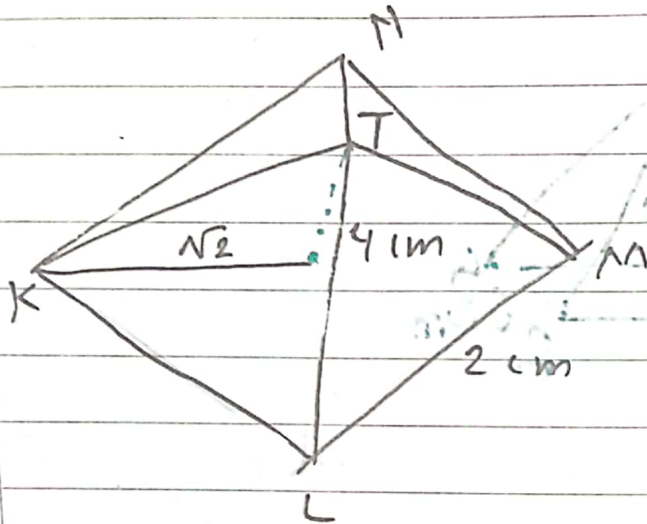 N
T
√2
4 cm
K
M
2 cm
L